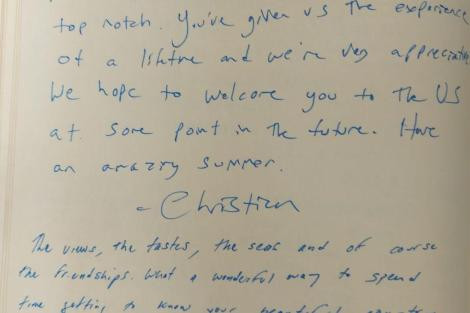 top notch. You've given us the experience
of a lifetime and we're very appreciative
We hope to welcome you to the US
at some point in the future. Have
an amazing summer.
- Christian
The views, the tastes, the seas and of course
the friendships. What a wonderful way to spend
time getting to know your beautiful